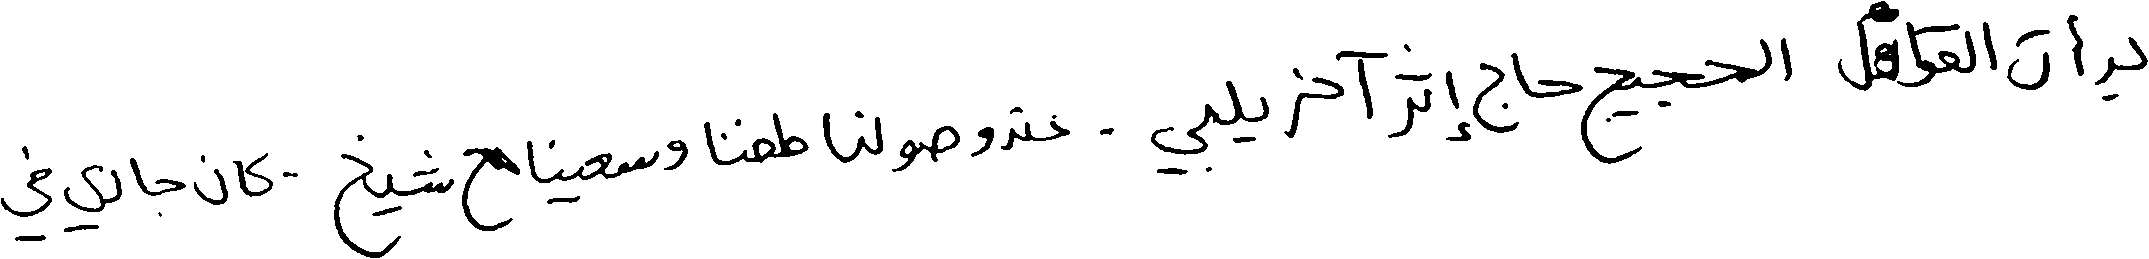 بدأت القوافل الحجيج حاج إثر آخر يلبي - عند وصولنا طفنا وسعينا مع شيخ - كان جاري في